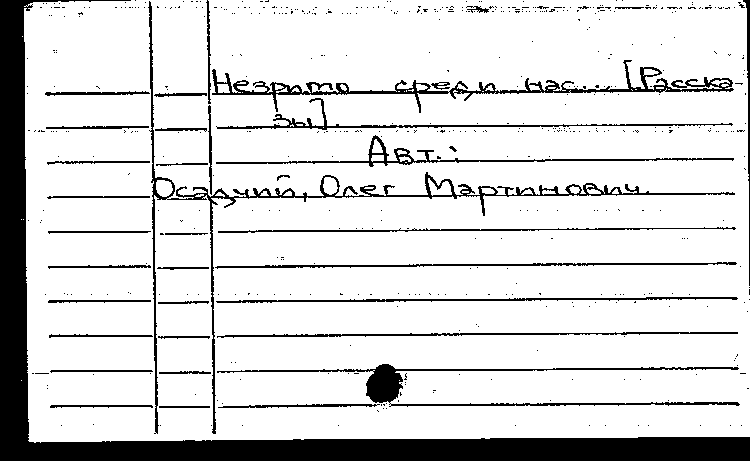 Незримо среди нас... [Расска
зы].
Авт.:
Осадчий, Олег Мартинович.